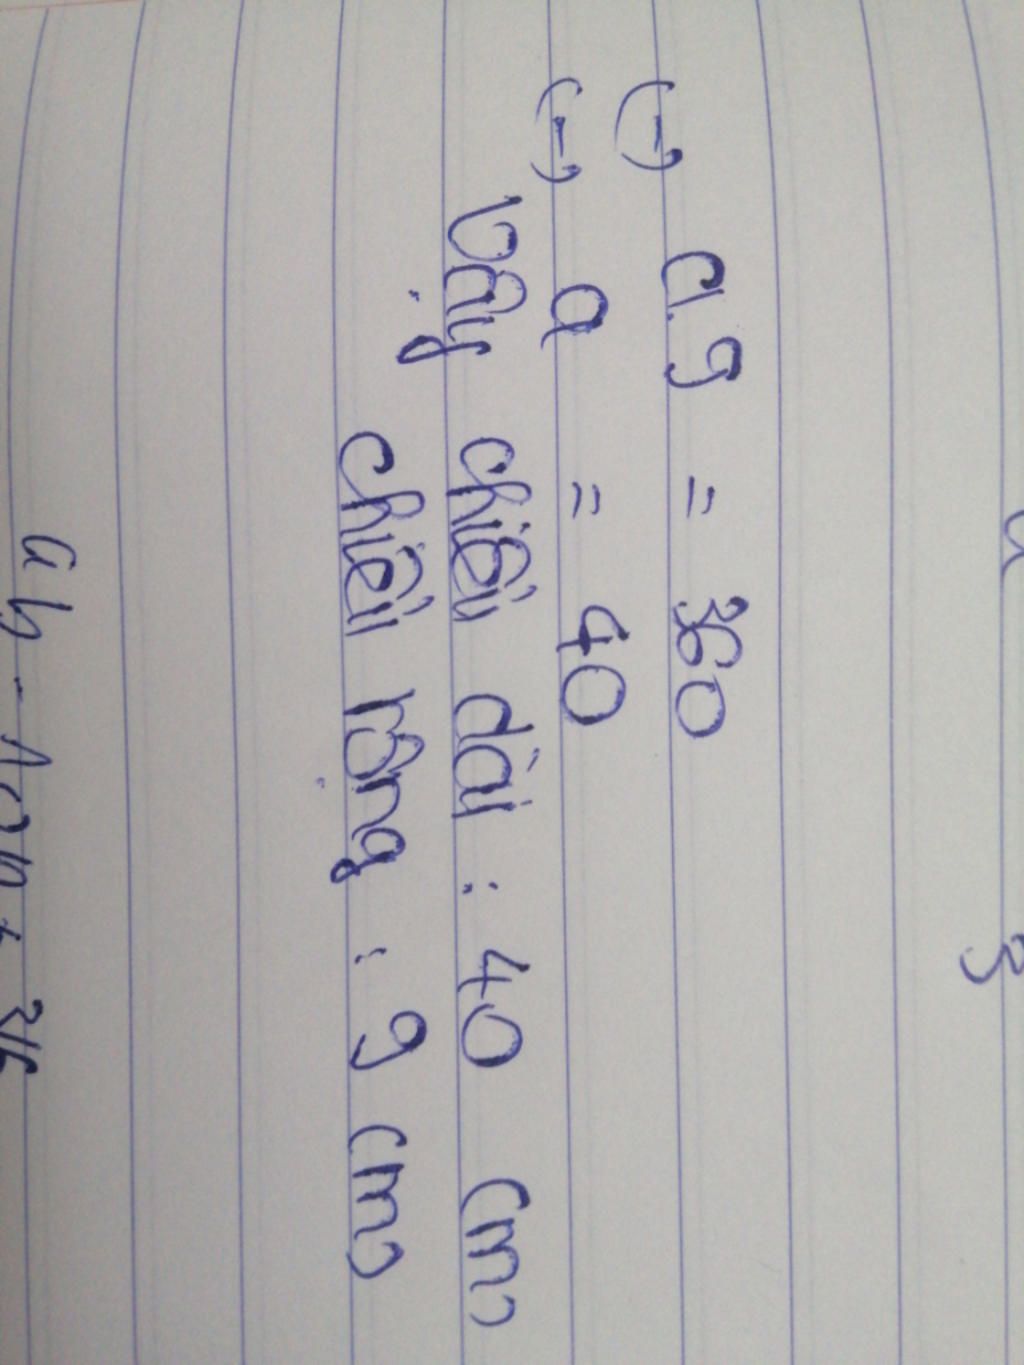 (-) a.9 = 360
(-) a = 40
Vậy chiều dài : 40 (m)
chiều rộng : 9 (m)